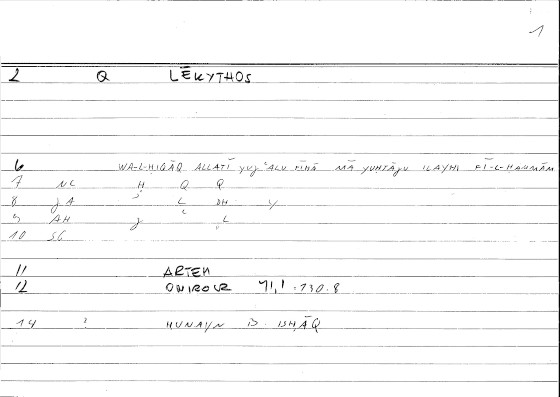 1
2 Q LĒKYTHOS
6 WA-L-ḤIQĀQ ALLATĪ YUJʿALU FĪHĀ MĀ YUḤTĀJU ILAYHI FĪ-L-ḤAMMĀM
7 NC Ḥ Q Q
8 JA L
9 AH J L
10 SG
11 ARTEM
12 ONIROCR
14 ? ḤUNAYN B. ISḤĀQ